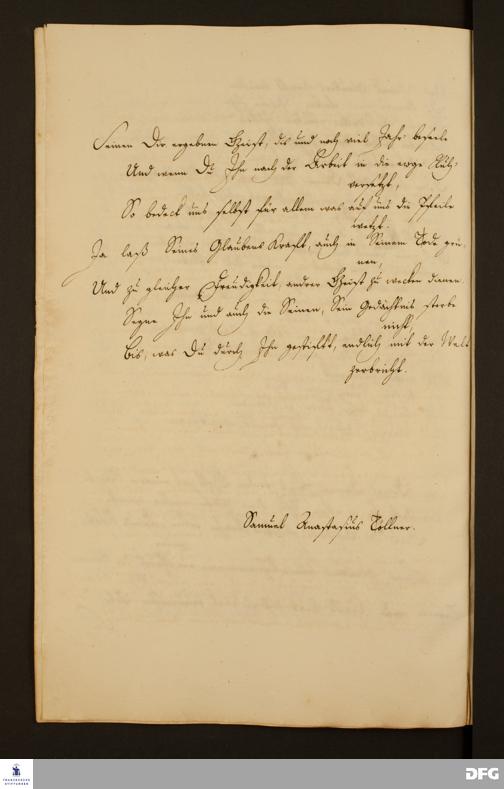 Seinen Dir ergebnen Geist, dis und noch viel Jahr beseele
Und wenn Du Ihn nach der Arbeit in die ewge Ruh
versetzt,
So bedeck uns selbst für allem was auf uns die Pfeile
wetzt.
Ja laß Seines Glaubens Krafft, auch in Seinem Tode grü-
nen,
Und zu gleicher Freudigkeit, andrer Geist zu wecken dienen.
Segne Ihn und auch die Seinen, Sein Gedächtnis sterbe
nicht,
Bis, was Du durch Ihn gestifftt, endlich mit der Welt
zerbricht.
Samuel Anastasius Töllner.
FRANCKESCHE
STIFTUNGEN
DFG